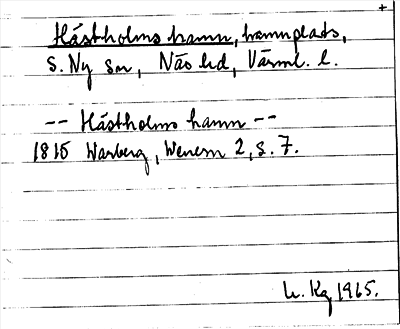 +
Hästholms hamn, hamnplats,
S. Ny sn, Näs hd, Värml. l.
-- Hästholms hamn --
1815 Warberg, Wenern 2, s. 7.
U. Kg 1965.